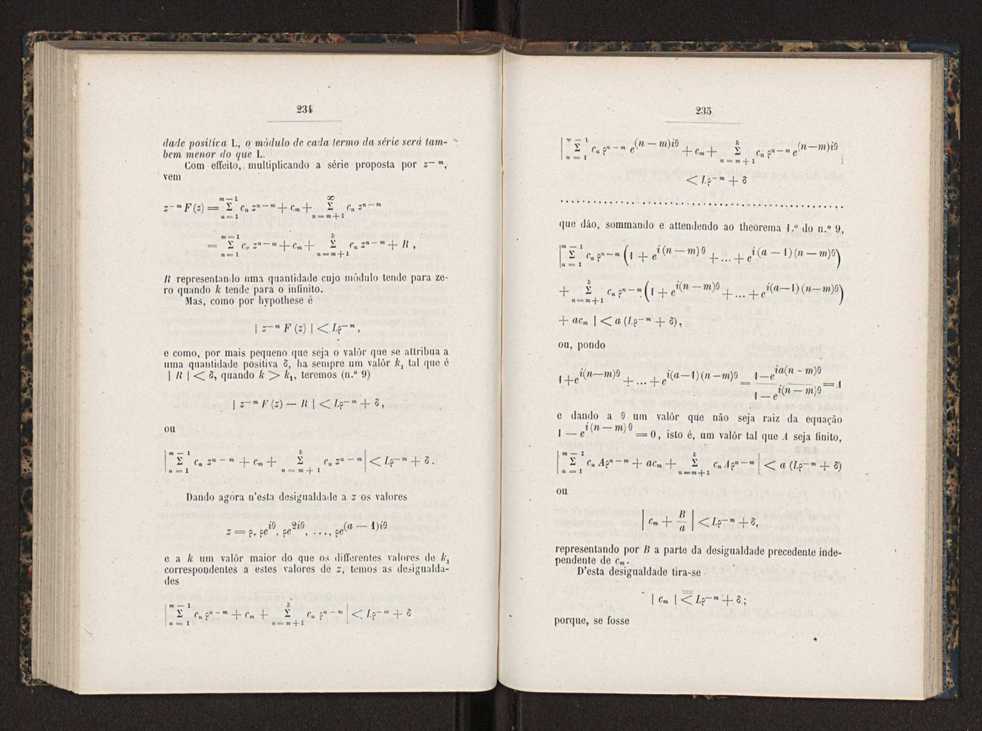 234
dade positiva L, o módulo de cada termo da série será tam-
bem menor do que L.
Com effeito, multiplicando a série proposta por z⁻ᵐ,
vem
z⁻ᵐ F(z) = Σ_{n=1}^{m−1} cₙ zⁿ⁻ᵐ + cₘ + Σ_{n=m+1}^{∞} cₙ zⁿ⁻ᵐ
= Σ_{n=1}^{m−1} cₙ zⁿ⁻ᵐ + cₘ + Σ_{n=m+1}^{k} cₙ zⁿ⁻ᵐ + R,
R representando uma quantidade cujo módulo tende para ze-
ro quando k tende para o infinito.
Mas, como por hypothese é
| z⁻ᵐ F(z) | < Lρ⁻ᵐ,
e como, por mais pequeno que seja o valôr que se attribua a
uma quantidade positiva δ, ha sempre um valôr k₁ tal que é
| R | < δ, quando k > k₁, teremos (n.º 9)
| z⁻ᵐ F(z) — R | < Lρ⁻ᵐ + δ,
ou
| Σ_{n=1}^{m−1} cₙ zⁿ⁻ᵐ + cₘ + Σ_{n=m+1}^{k} cₙ zⁿ⁻ᵐ | < Lρ⁻ᵐ + δ.
Dando agora n'esta desigualdade a z os valores
z = ρ, ρe^{iθ}, ρe^{2iθ}, ..., ρe^{(a — 1)iθ}
e a k um valôr maior do que os differentes valores de k₁
correspondentes a estes valores de z, temos as desigualda-
des
| Σ_{n=1}^{m−1} cₙ ρⁿ⁻ᵐ + cₘ + Σ_{n=m+1}^{k} cₙ ρⁿ⁻ᵐ | < Lρ⁻ᵐ + δ
235
| Σ_{n=1}^{m−1} cₙ ρⁿ⁻ᵐ e^{(n — m)iθ} + cₘ + Σ_{n=m+1}^{k} cₙ ρⁿ⁻ᵐ e^{(n—m)iθ} |
< Lρ⁻ᵐ + δ
. . . . . . . . . . . . . . . . . . . . . . . . . . . . . . . . . . . .
que dão, sommando e attendendo ao theorema 1.º do n.º 9,
| Σ_{n=1}^{m−1} cₙ ρⁿ⁻ᵐ (1 + e^{i(n — m)θ} + ... + e^{i(a — 1)(n — m)θ})
+ Σ_{n=m+1}^{k} cₙ ρⁿ⁻ᵐ (1 + e^{i(n — m)θ} + ... + e^{i(a—1)(n—m)θ})
+ acₘ | < a (Lρ⁻ᵐ + δ),
ou, pondo
1 + e^{i(n—m)θ} + ... + e^{i(a—1)(n—m)θ} = (1 — e^{ia(n - m)θ}) / (1 — e^{i(n — m)θ}) = A
e dando a θ um valôr que não seja raiz da equação
1 — e^{i(n — m)θ} = 0, isto é, um valôr tal que A seja finito,
| Σ_{n=1}^{m−1} cₙ Aρⁿ⁻ᵐ + acₘ + Σ_{n=m+1}^{k} cₙ Aρⁿ⁻ᵐ | < a (Lρ⁻ᵐ + δ)
ou
| cₘ + B/a | < Lρ⁻ᵐ + δ,
representando por B a parte da desigualdade precedente inde-
pendente de cₘ.
D'esta desigualdade tira-se
| cₘ | ≦ Lρ⁻ᵐ + δ;
porque, se fosse